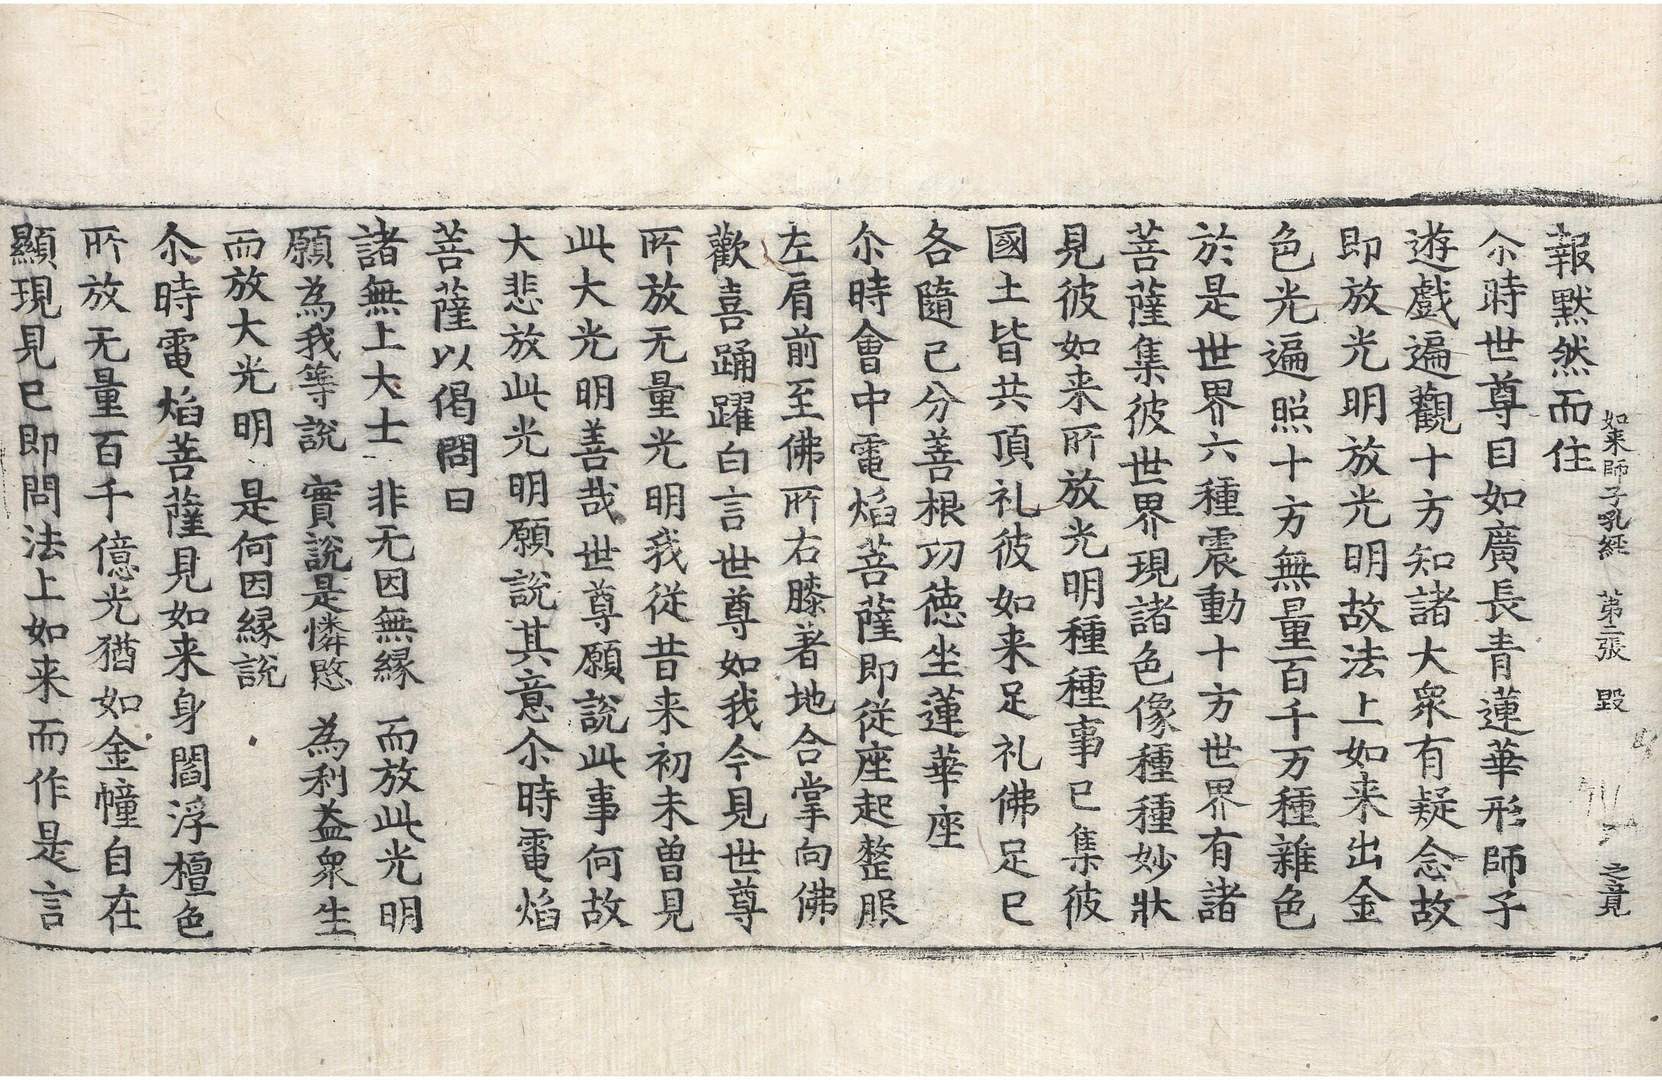 如来師子吼経　第二張　毀　之竟
報黙然而住
尒時世尊目如廣長青蓮華形師子
遊戯遍觀十方知諸大衆有疑念故
即放光明放光明故法上如来出金
色光遍照十方無量百千万種雜色
於是世界六種震動十方世界有諸
菩薩集彼世界現諸色像種種妙狀
見彼如来所放光明種種事已集彼
國土皆共頂礼彼如来足礼佛足已
各隨已分善根功徳坐蓮華座
尒時會中電焰菩薩即従座起整服
左肩前至佛所右膝著地合掌向佛
歡喜踊躍白言世尊如我今見世尊
所放无量光明我従昔来初未曽見
此大光明善哉世尊願說此事何故
大悲放此光明願說其意尒時電焰
菩薩以偈問曰
諸無上大士　非无因無縁　而放此光明
願為我等說　實說是憐愍　為利益衆生
而放大光明　是何因縁說
尒時電焰菩薩見如来身閻浮檀色
所放无量百千億光猶如金幢自在
顯現見已即問法上如来而作是言